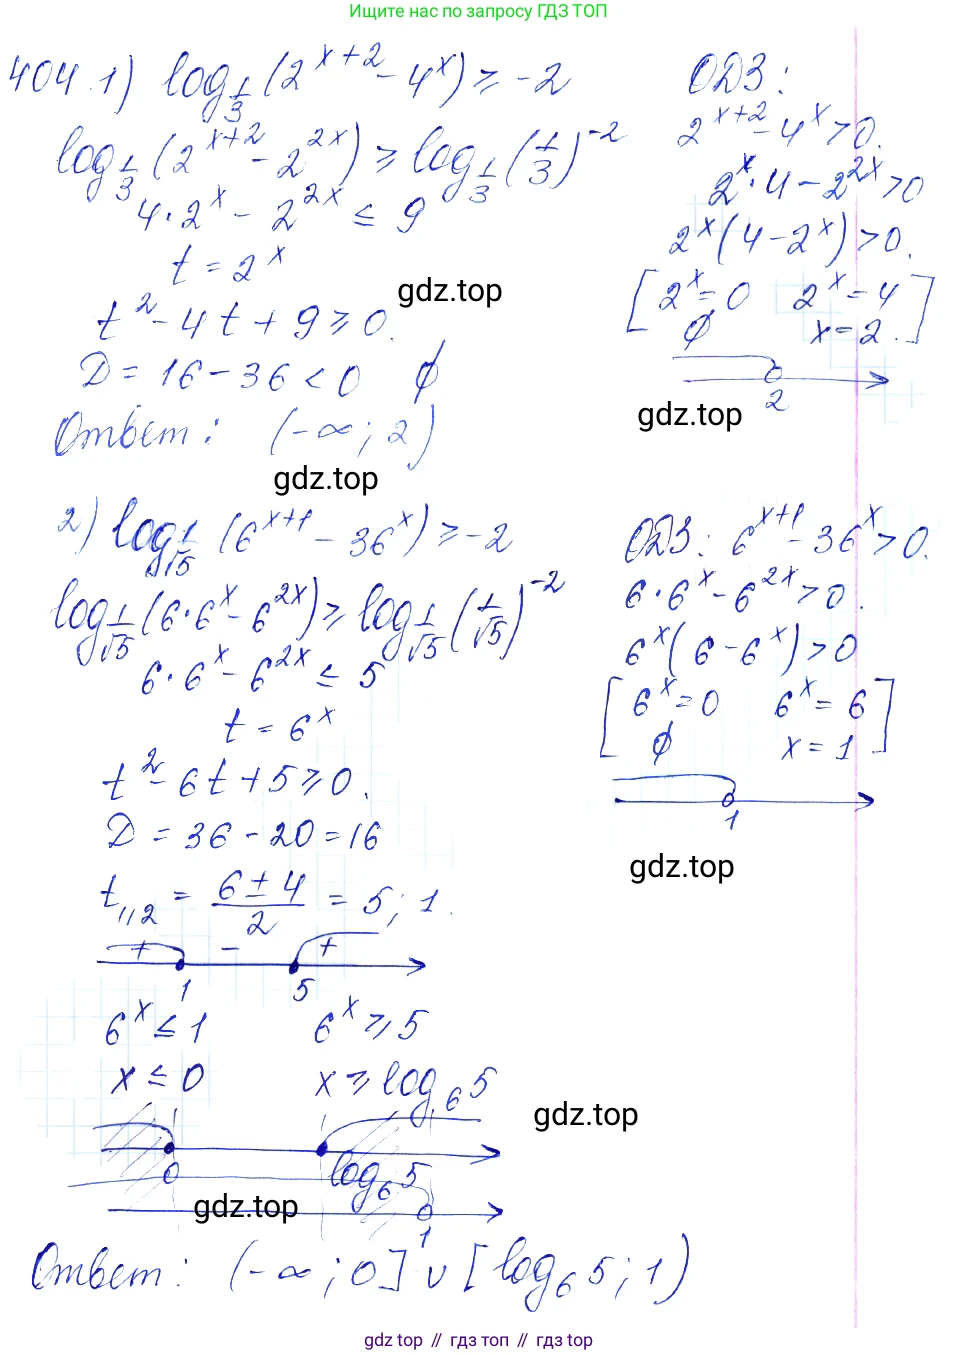 Ищите нас по запросу ГДЗ ТОП
404.1) log_{1/3} (2^{x+2} - 4^x) ≥ -2
ОДЗ:
log_{1/3} (2^{x+2} - 2^{2x}) ≥ log_{1/3} (1/3)^{-2}
2^{x+2} - 4^x > 0.
4·2^x - 2^{2x} ≤ 9
2^x·4 - 2^{2x} > 0
t = 2^x
2^x (4 - 2^x) > 0.
gdz.top
[2^x = 0 2^x = 4]
t^2 - 4t + 9 ≥ 0.
∅ x = 2.
D = 16 - 36 < 0 ∅
2
gdz.top
Ответ: (-∞; 2)
gdz.top
2) log_{1/√5} (6^{x+1} - 36^x) ≥ -2
ОДЗ: 6^{x+1} - 36^x > 0.
log_{1/√5} (6·6^x - 6^{2x}) ≥ log_{1/√5} (1/√5)^{-2}
6·6^x - 6^{2x} > 0.
6·6^x - 6^{2x} ≤ 5
6^x (6 - 6^x) > 0
t = 6^x
[6^x = 0 6^x = 6]
∅ x = 1
t^2 - 6t + 5 ≥ 0.
1
D = 36 - 20 = 16
gdz.top
t_{1,2} = (6 ± 4)/2 = 5; 1.
+ - +
1 5
6^x ≤ 1 6^x ≥ 5
x ≤ 0 x ≥ log_6 5
gdz.top
0 log_6 5
gdz.top
1
Ответ: (-∞; 0] ∪ [log_6 5; 1)
gdz top // гдз топ // gdz top